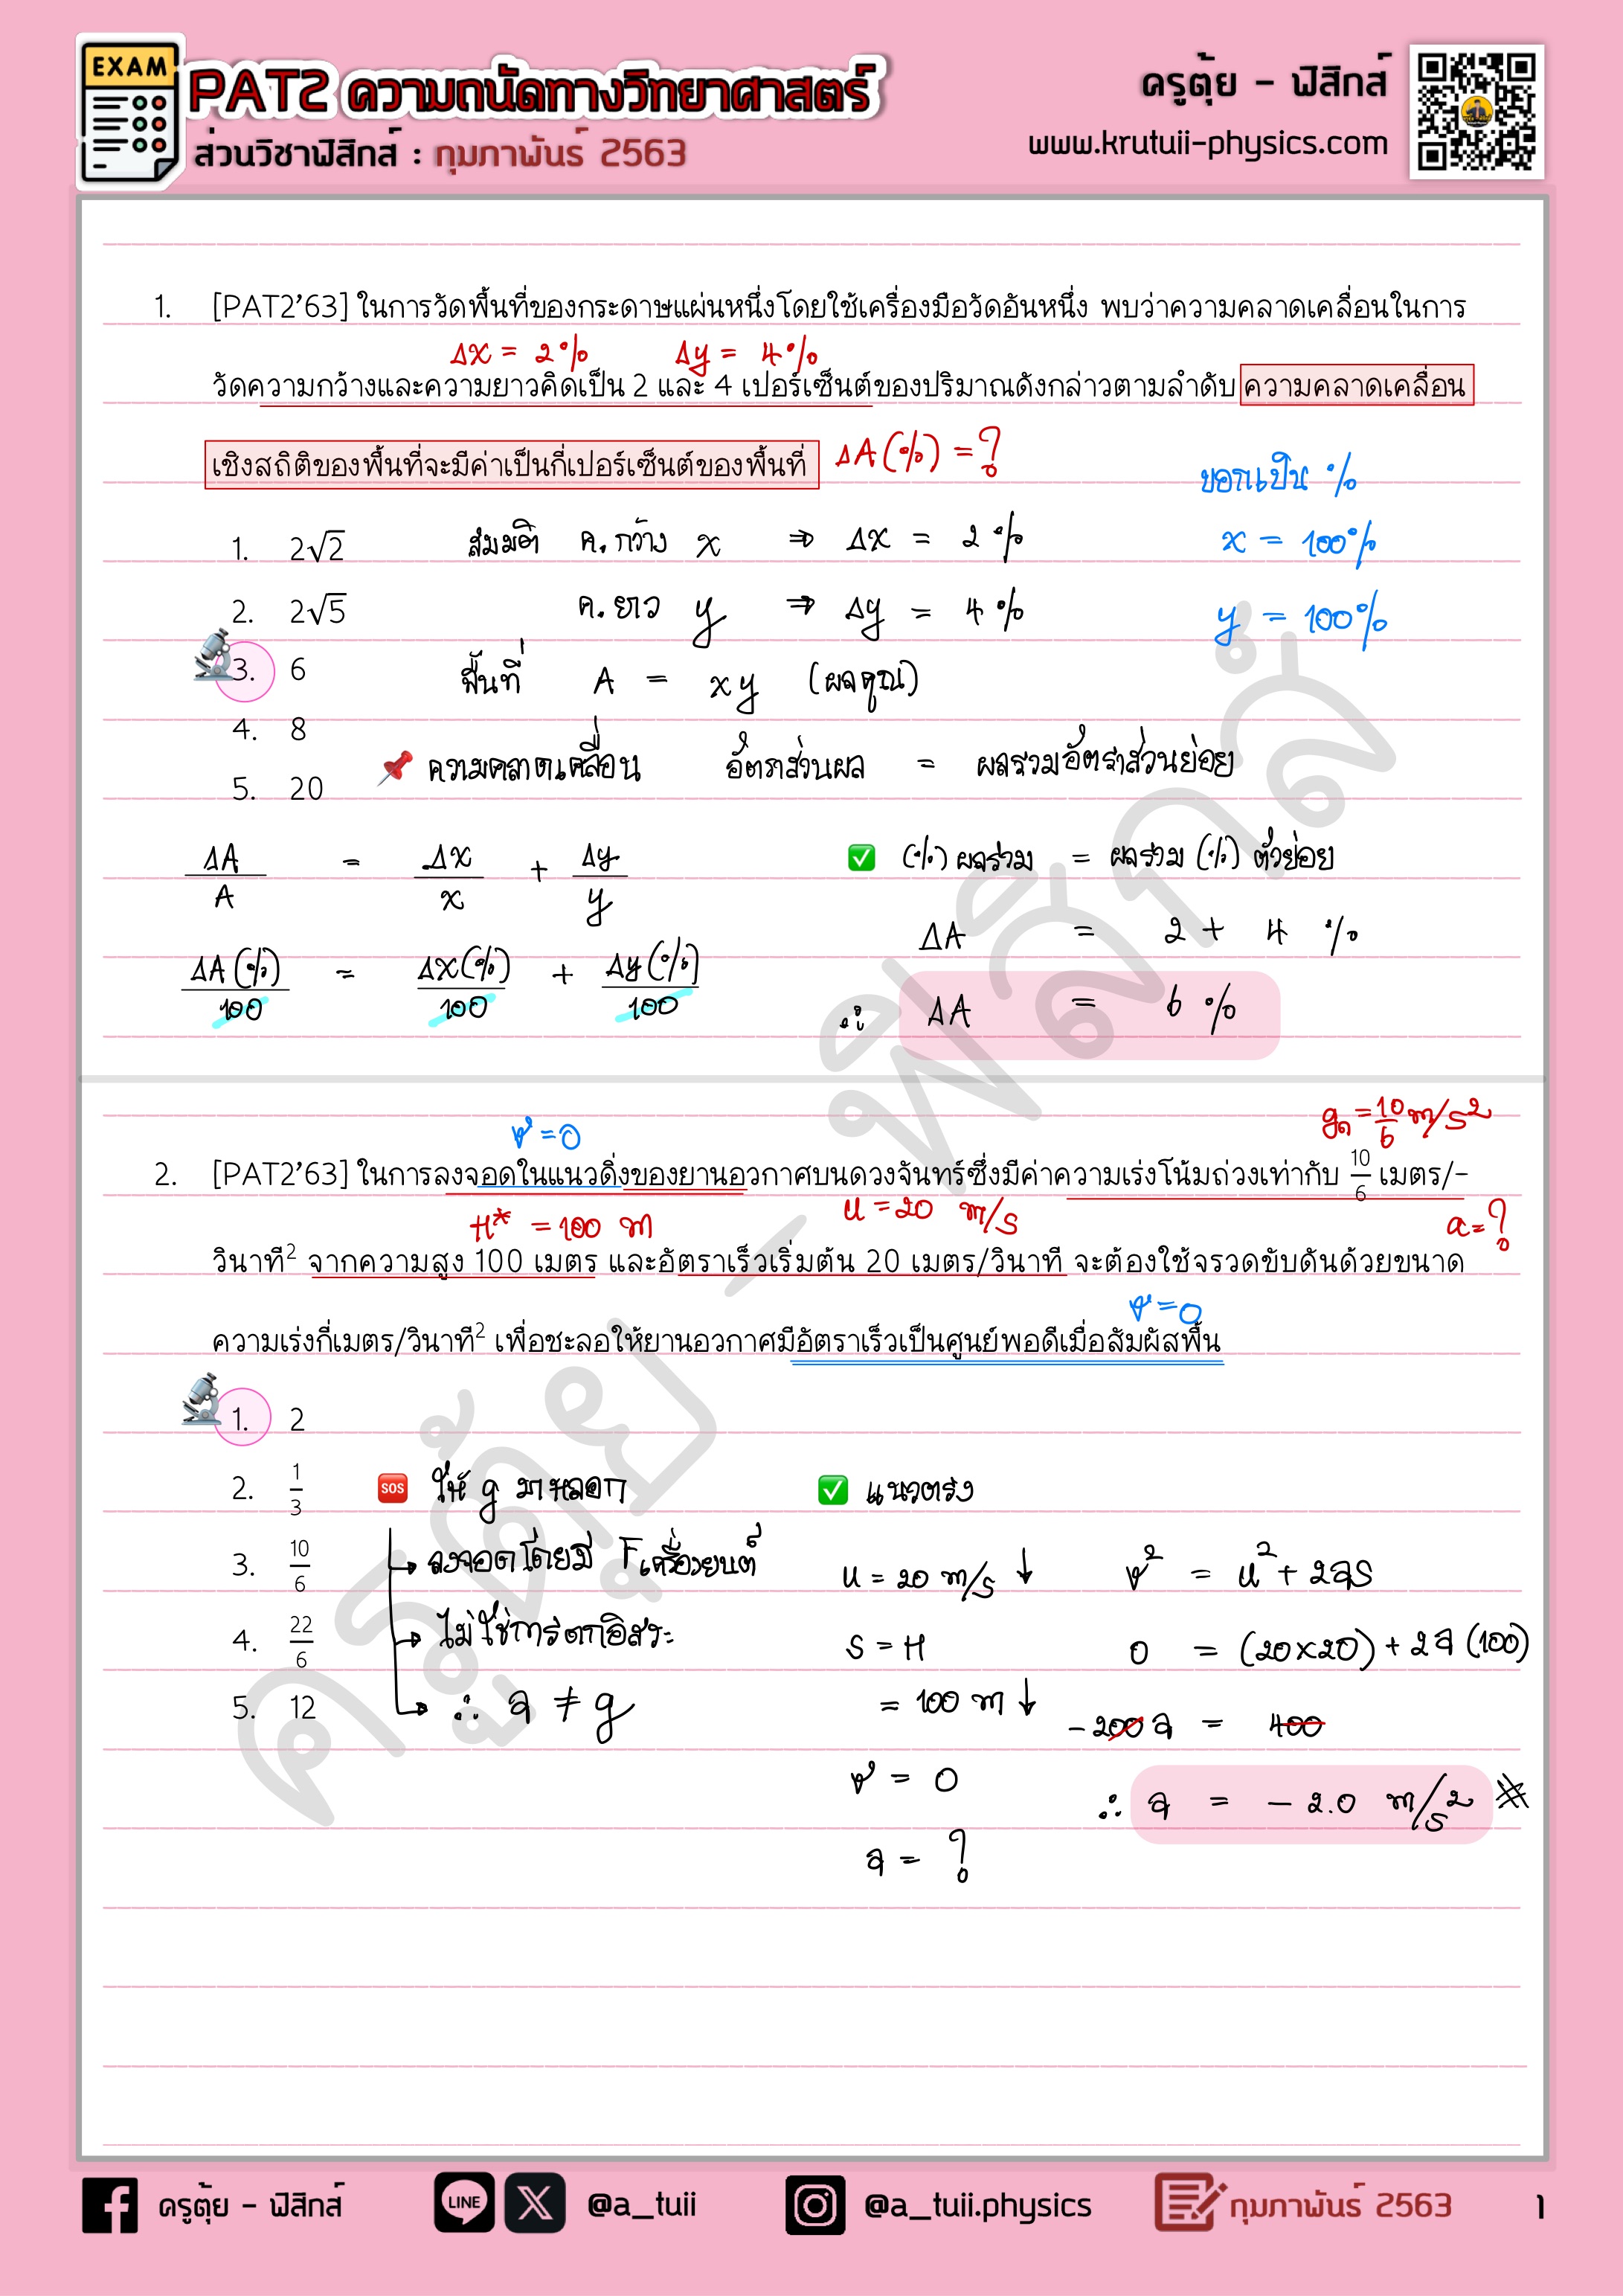 EXAM
PAT2 ความถนัดทางวิทยาศาสตร์
ส่วนวิชาฟิสิกส์ : กุมภาพันธ์ 2563
ครูตุ้ย - ฟิสิกส์
www.krutuii-physics.com
1. [PAT2'63] ในการวัดพื้นที่ของกระดาษแผ่นหนึ่งโดยใช้เครื่องมือวัดอันหนึ่ง พบว่าความคลาดเคลื่อนในการ
Δx = 2% Δy = 4%
วัดความกว้างและความยาวคิดเป็น 2 และ 4 เปอร์เซ็นต์ของปริมาณดังกล่าวตามลำดับ ความคลาดเคลื่อน
เชิงสถิติของพื้นที่จะมีค่าเป็นกี่เปอร์เซ็นต์ของพื้นที่ ΔA(%) = ?
บอกเป็น %
1. 2√2 สมมติ ค.กว้าง x ⇒ Δx = 2 % x = 100%
2. 2√5 ค.ยาว y ⇒ Δy = 4 % y = 100%
3. 6 พื้นที่ A = xy (ผลคูณ)
4. 8
ความคลาดเคลื่อน อัตราส่วนผล = ผลรวมอัตราส่วนย่อย
5. 20
ΔA/A = Δx/x + Δy/y
(%) ผลรวม = ผลรวม (%) ตัวย่อย
ΔA = 2 + 4 %
ΔA(%)/100 = Δx(%)/100 + Δy(%)/100
∴ ΔA = 6 %
v = 0
gด = 10/6 m/s²
2. [PAT2'63] ในการลงจอดในแนวดิ่งของยานอวกาศบนดวงจันทร์ซึ่งมีค่าความเร่งโน้มถ่วงเท่ากับ 10/6 เมตร/-
H* = 100 m u = 20 m/s a = ?
วินาที² จากความสูง 100 เมตร และอัตราเร็วเริ่มต้น 20 เมตร/วินาที จะต้องใช้จรวดขับดันด้วยขนาด
v = 0
ความเร่งกี่เมตร/วินาที² เพื่อชะลอให้ยานอวกาศมีอัตราเร็วเป็นศูนย์พอดีเมื่อสัมผัสพื้น
1. 2
2. 1/3
SOS ให้ g มาหลอก
แนวตรง
3. 10/6
ลงจอดโดยมี Fเครื่องยนต์
u = 20 m/s ↓ v² = u² + 2as
4. 22/6
ไม่ใช่การตกอิสระ
s = H 0 = (20×20) + 2a(100)
5. 12
∴ a ≠ g
= 100 m ↓ -200a = 400
v = 0
∴ a = - 2.0 m/s² #
a = ?
ครูตุ้ย - ฟิสิกส์
ครูตุ้ย - ฟิสิกส์
LINE
@a_tuii
@a_tuii.physics
กุมภาพันธ์ 2563
1